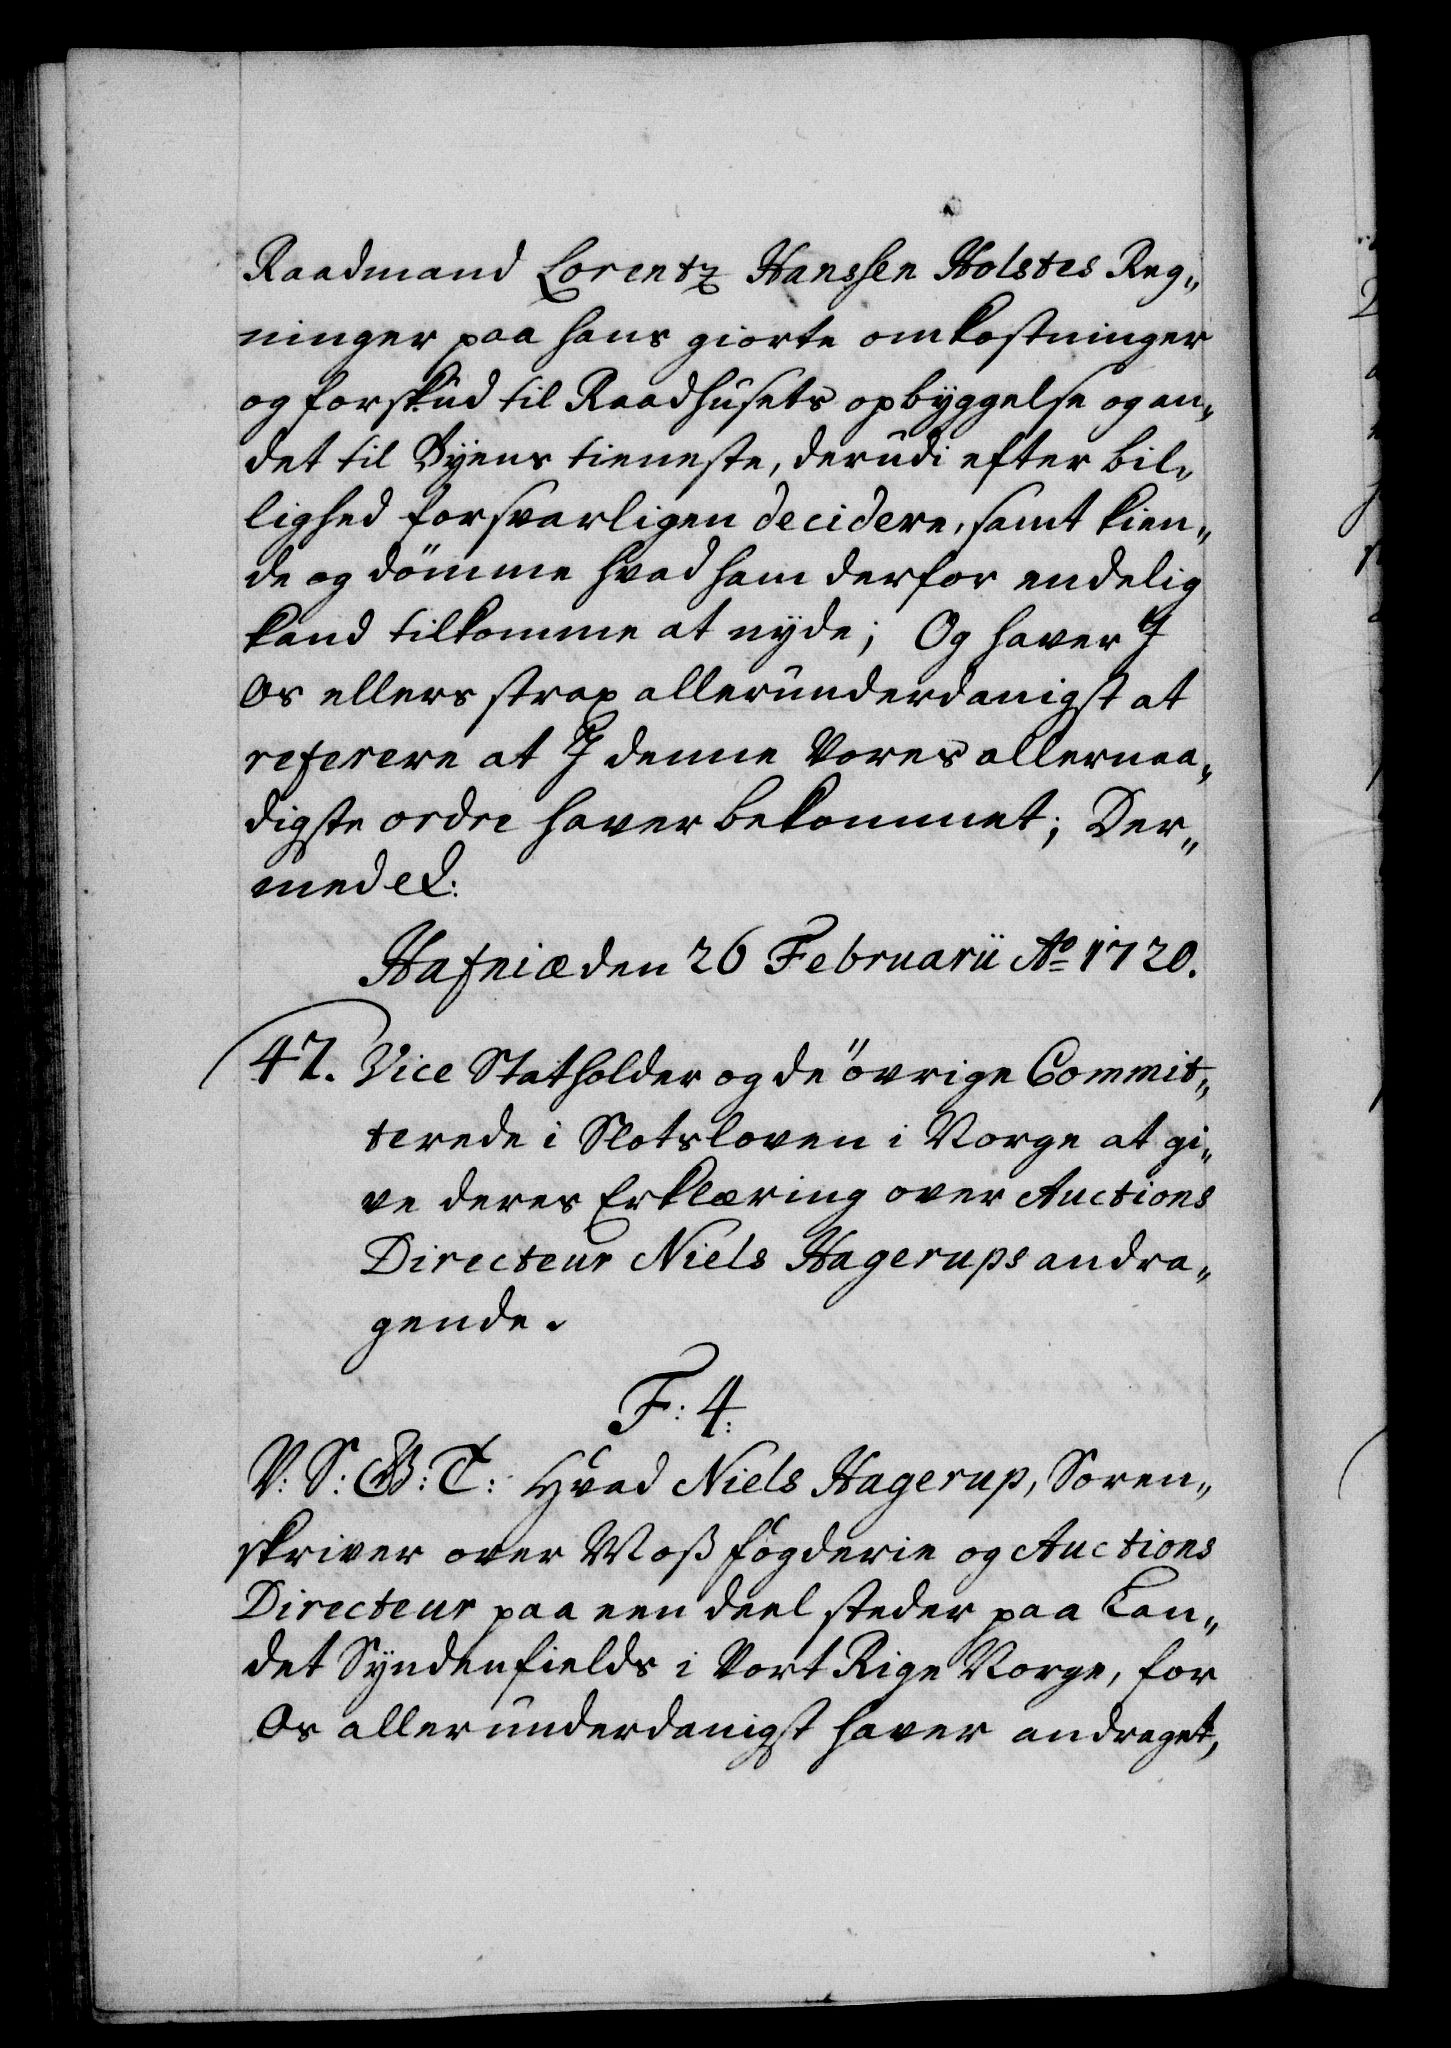 Raadmand Lorentz Hanssen Holstes Reg„
ninger paa hans giorte omkostninger
og forskud til Raadhusets opbyggelse og an„
det til Byens tieneste, derudi efter bil„
lighed forsvarligen decidere, samt kien„
de og dömme hvad ham derfor endelig
kand tilkomme at nyde; Og haver I
Os ellers strax allerunderdanigst at
referere at I denne Vores allernaa„
digste ordre haver bekommet; Der„
med etc:
Hafniæ den 26 Februarii Ao 1720.
47. Vice Statholder og de övrige Commit„
terede i Slotsloven i Norge at gi„
ve deres Erklæring over Auctions
Directeur Niels Hagerups andra„
gende.
F: 4:
V: S: G: T: Hvad Niels Hagerup, Soren„
skriver over Moß fögderie og Auctions
Directeur paa een deel steder paa Lan„
det Syndenfields i Vort Rige Norge, for
Os allerunderdanigst haver andraget,